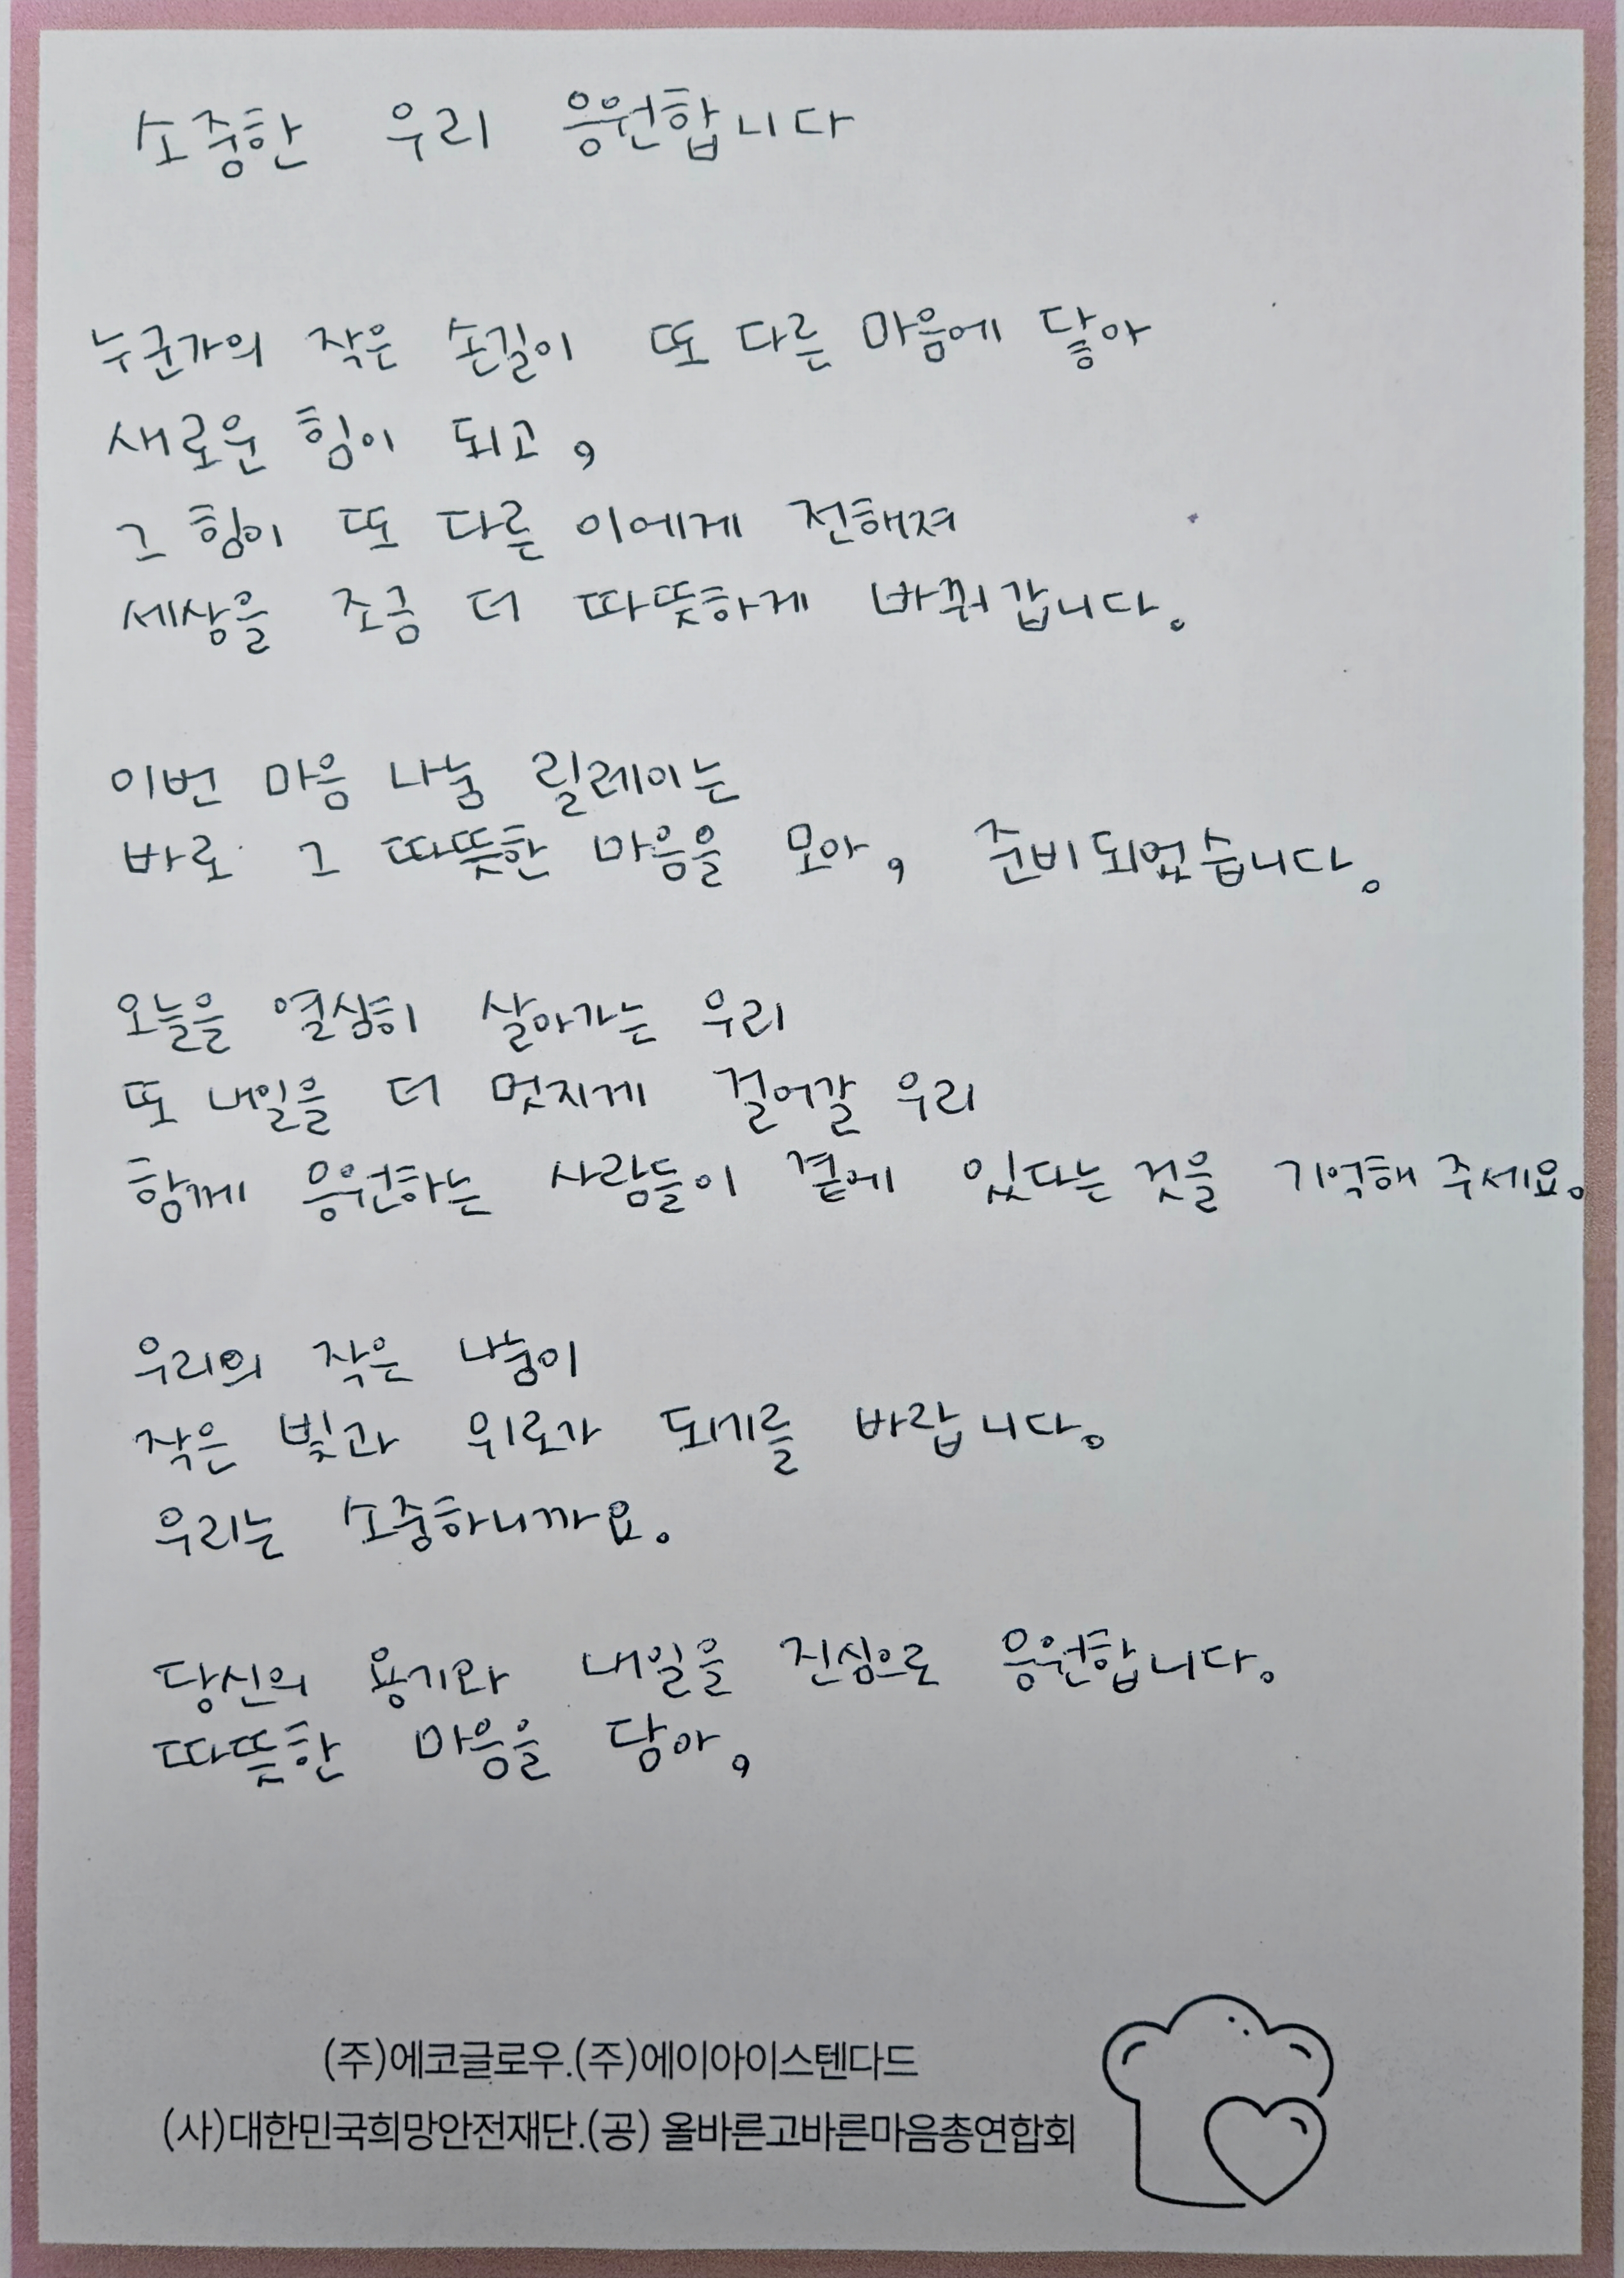 소중한 우리 응원합니다
누군가의 작은 손길이 또 다른 마음에 닿아
새로운 힘이 되고,
그 힘이 또 다른 이에게 전해져
세상을 조금 더 따뜻하게 바꿔갑니다.
이번 마음 나눔 릴레이는
바로 그 따뜻한 마음을 모아, 준비되었습니다.
오늘을 열심히 살아가는 우리
또 내일을 더 멋지게 걸어갈 우리
함께 응원하는 사람들이 곁에 있다는 것을 기억해 주세요.
우리의 작은 나눔이
작은 빛과 위로가 되기를 바랍니다.
우리는 소중하니까요.
당신의 용기와 내일을 진심으로 응원합니다.
따뜻한 마음을 담아,
(주)에코글로우.(주)에이아이스텐다드
(사)대한민국희망안전재단.(공) 올바른고바른마음총연합회